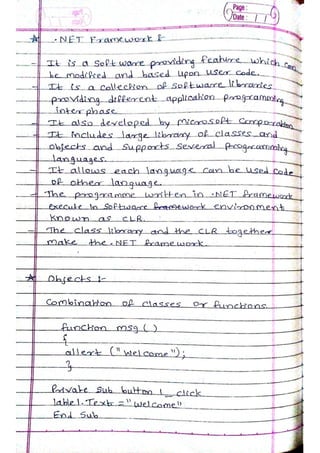 Page :
Date : / /
★ .NET Framework :-
- It is a Software providing feature which can
be modified and based upon user code.
- It is a collection of software libraries
providing different application programming
interphase.
- It also developed by Microsoft Comporation
- It includes large library of classes and
objects and supports several programming
languages.
- It allows each language can be used code
of other language.
- The programme written in .NET framework
execute in software framework environment
known as CLR.
- The class library and the CLR together
make the .NET framework.
★ Objects :-
Combination of classes or functions
function msg ( )
{
allert ("welcome");
}
Private Sub button 1_click
lable1.Text = "welcome"
End Sub